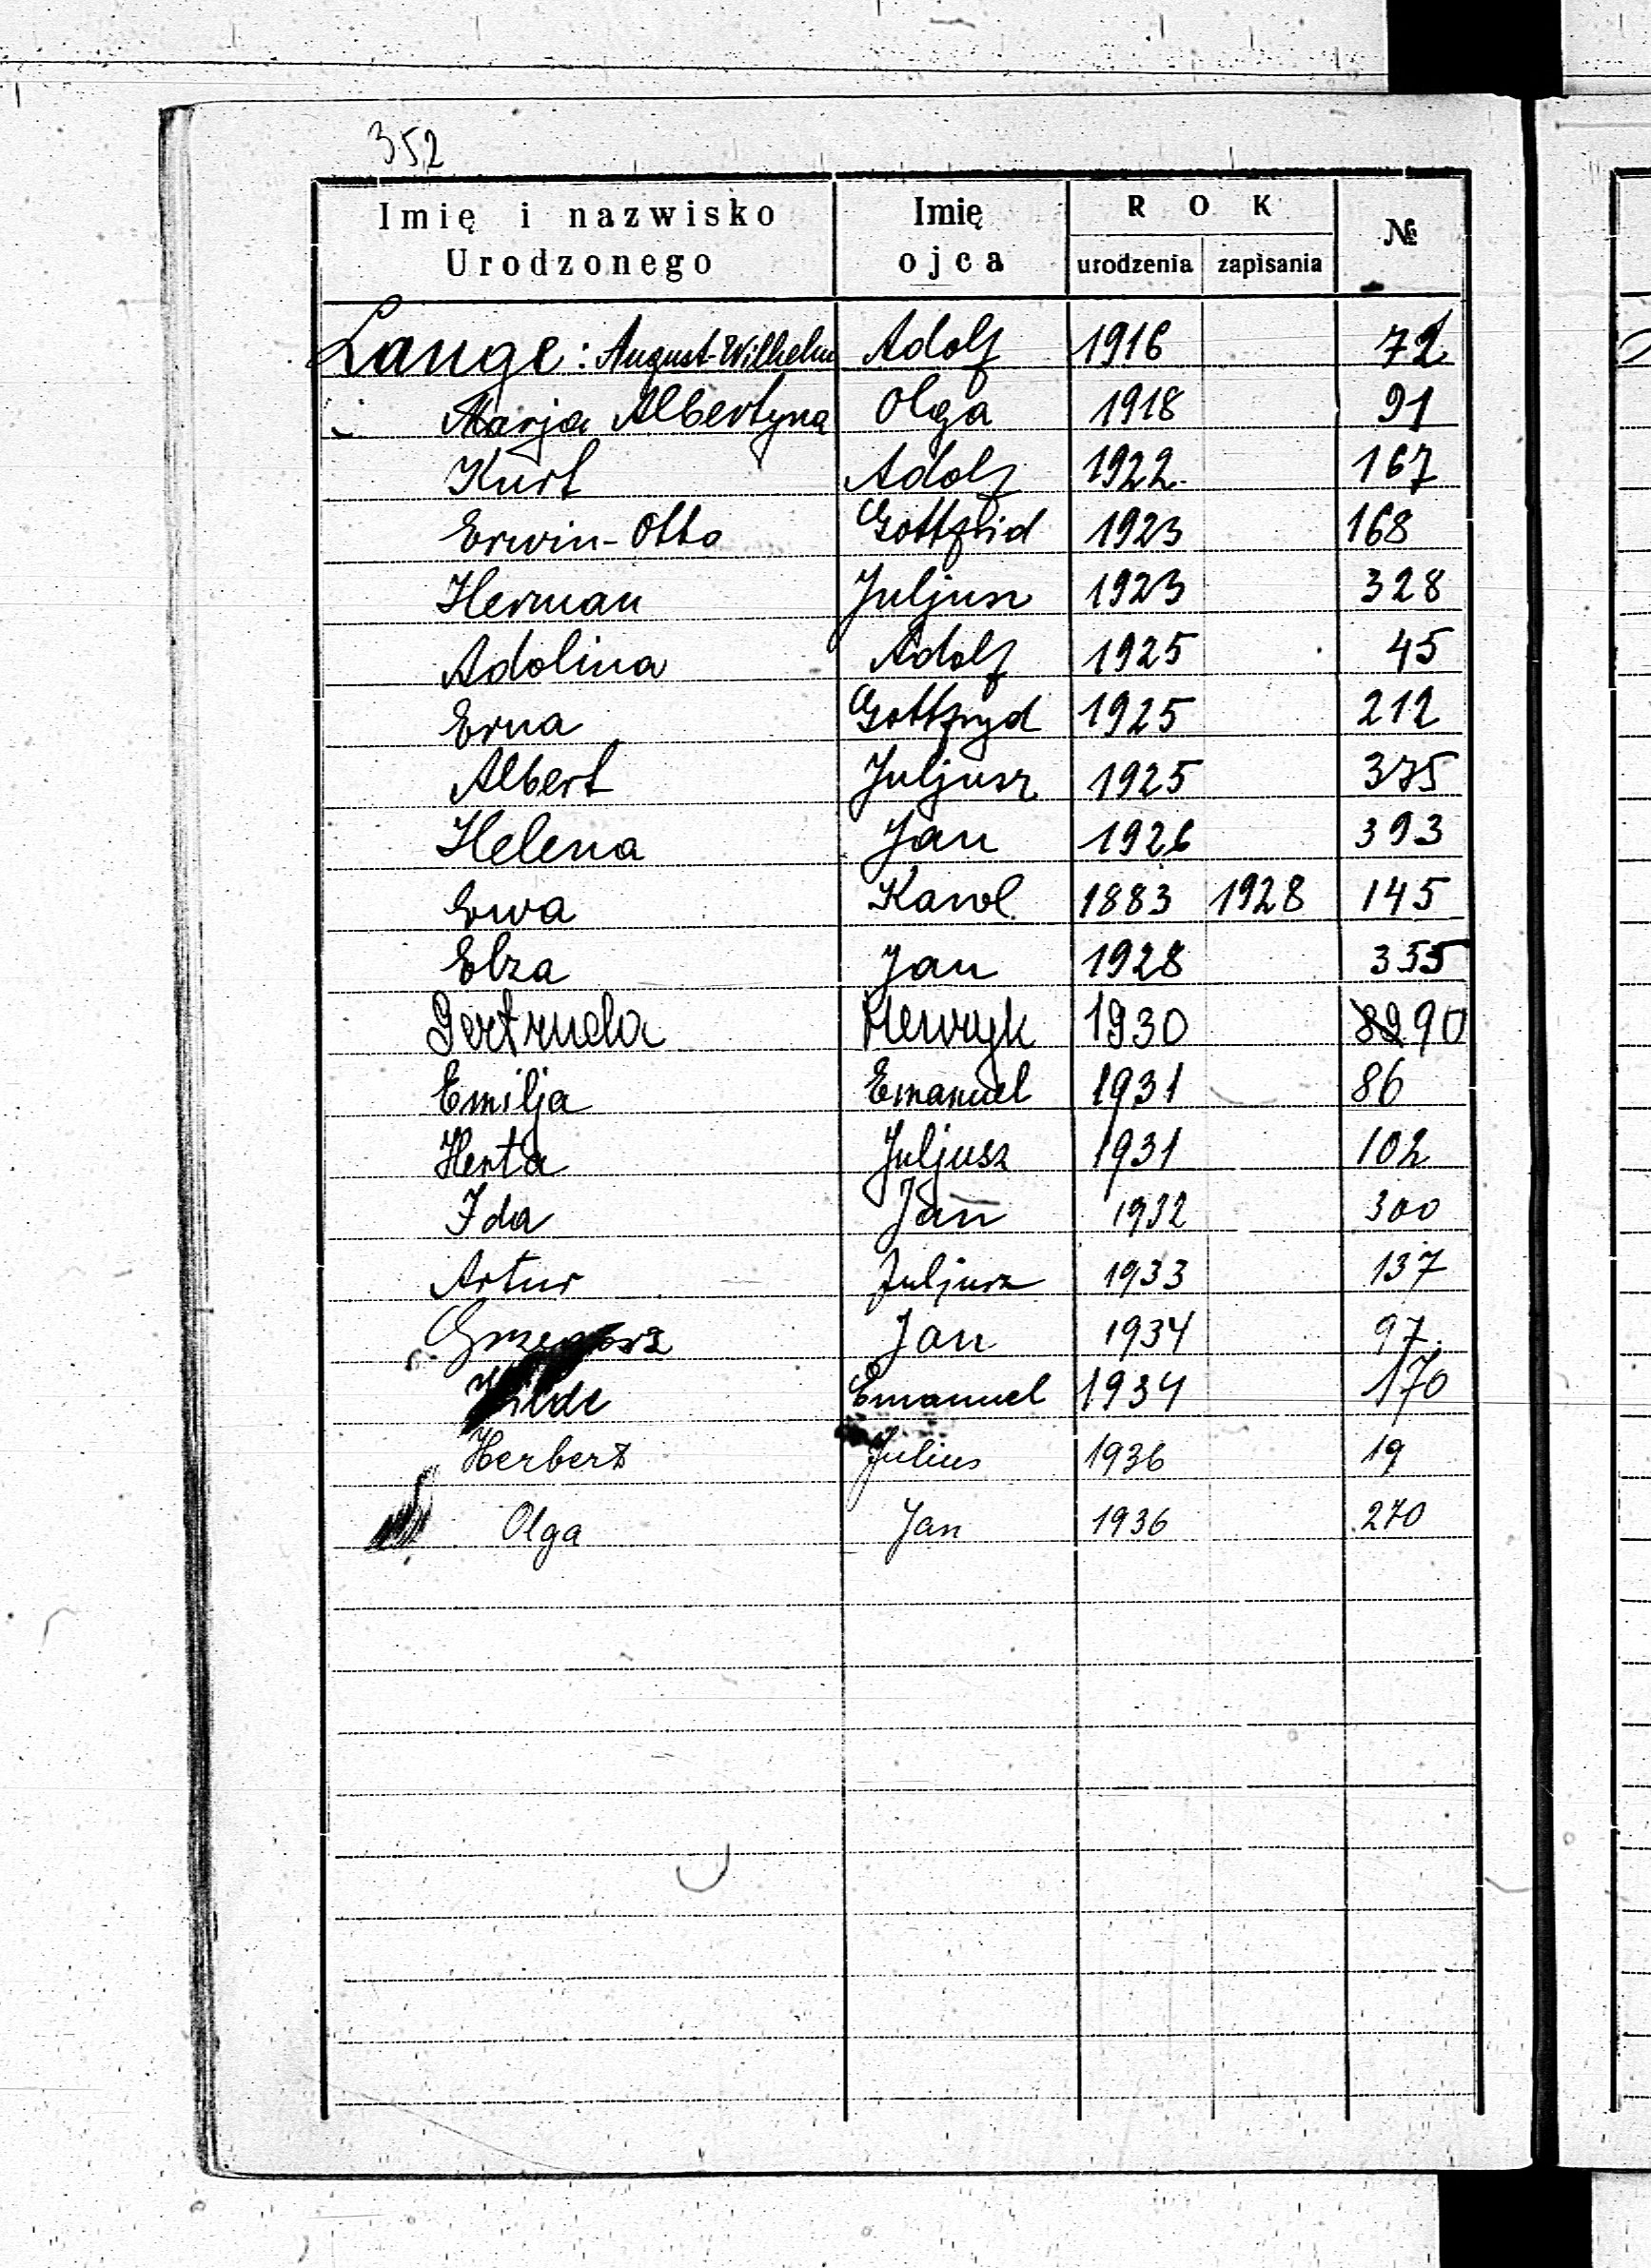 352
Imię i nazwisko Urodzonego Imię ojca ROK urodzenia zapisania №
Lange: August-Wilhelm Adolf 1916 72
Marja Albertyna Olga 1918 91
Kurt Adolf 1922 167
Erwin-Otto Gottfrid 1923 168
Herman Juljusz 1923 328
Adolina Adolf 1925 45
Erna Gottfryd 1925 212
Albert Juljusz 1925 375
Helena Jan 1926 393
Ewa Karol 1883 1928 145
Elza Jan 1928 355
Gertruda Henryk 1930 90
Emilja Emanuel 1931 86
Herta Juljusz 1931 102
Ida Jan 1932 300
Artur Juljusz 1933 137
Grzegorz Jan 1934 97
Emanuel 1934 170
Herbert Julius 1936 19
Olga Jan 1936 270